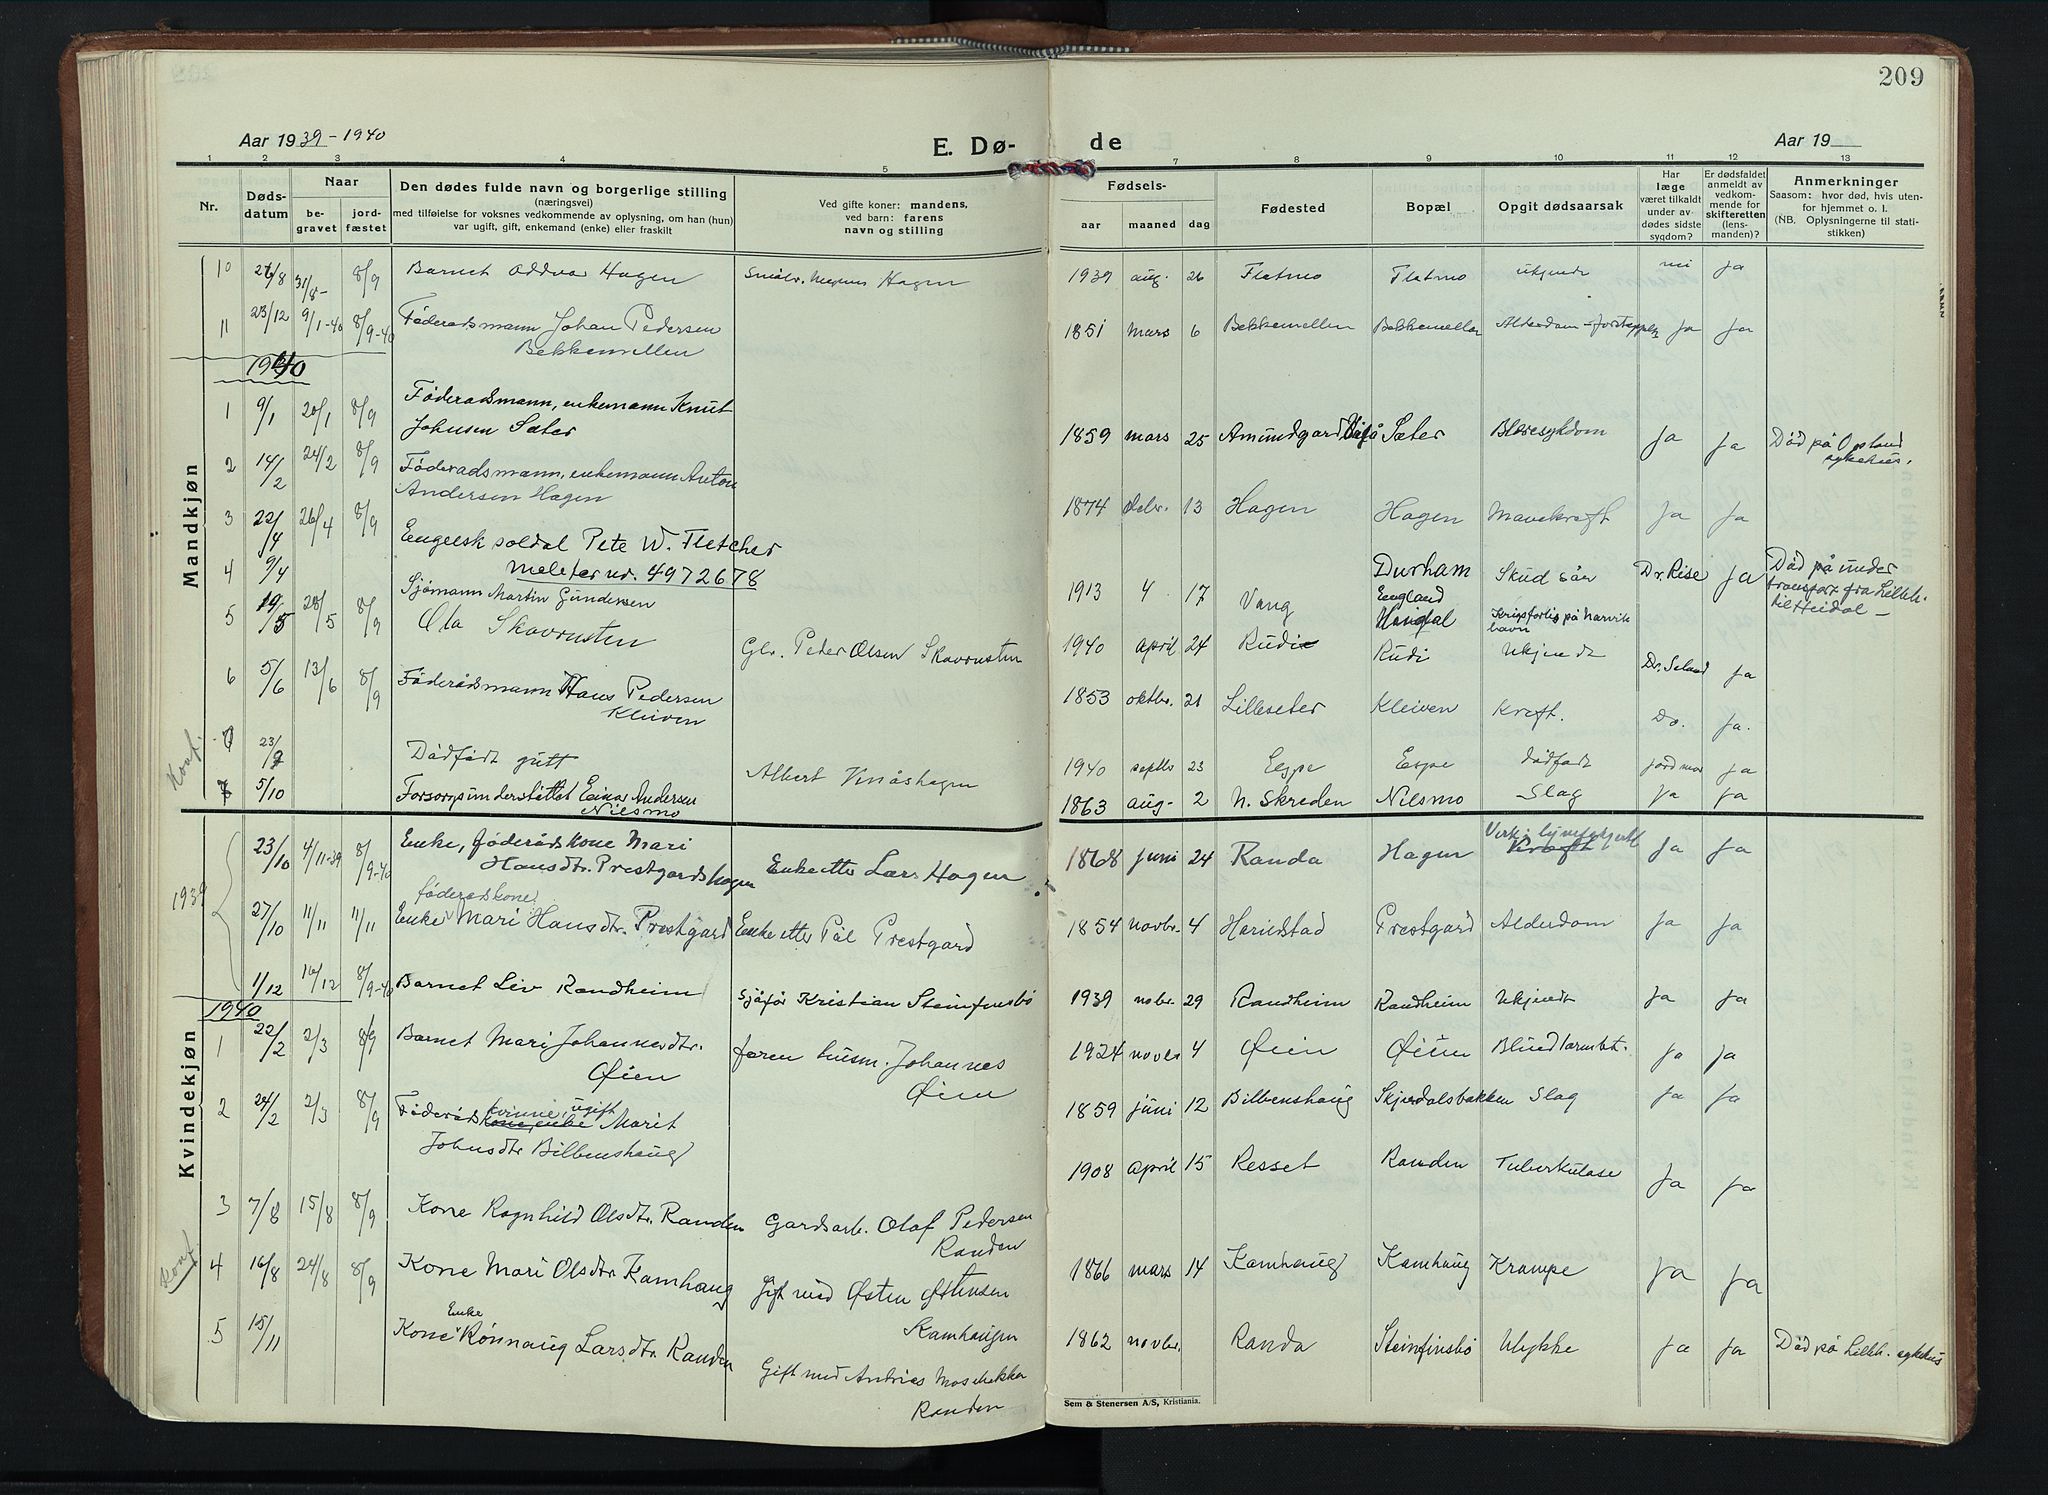 209
Aar 1939-1940
E. Dø- de
Aar 19
1 2 3 4 5 7 8 9 10 11 12 13
Nr.
Døds-
datum
Naar
be-
gravet
jord-
fæstet
Den dødes fulde navn og borgerlige stilling
(næringsvei)
med tilføielse for voksnes vedkommende av oplysning, om han (hun)
var ugift, gift, enkemand (enke) eller fraskilt
Ved gifte koner: mandens,
ved barn: farens
navn og stilling
Fødsels-
aar maaned dag
Fødested
Bopæl
Opgit dødsaarsak
Har
læge
været tilkaldt
under av-
dødes sidste
sygdom?
Er dødsfaldet
anmeldt av
vedkom-
mende for
skifteretten
(lens-
manden)?
Anmerkninger
Saasom: hvor død, hvis uten-
for hjemmet o. l.
(NB. Oplysningerne til stati-
stikken)
Mandkjøn
10 26/8 31/8- 8/9 Barnet Oddvar Hagen Magnus Hagen 1939 aug. 26 Flatmo Flatmo ukjendt nei Ja
11 23/12 9/1-40 8/9-40 Føderadsmann Johan Pedersen
Bekkemellen 1851 mars 6 Bekkemellen Bekkemellen Alderdom Ja Ja
1940
1 9/1 20/1 8/9 Føderadsmann, enkemann Knut
Johnsen Sæter 1859 mars 25 Amundgard Sæter Blæresykdom Ja Ja Død på Opland
sykehus.
2 14/2 24/2 8/9 Føderadsmann, enkemann Anton
Andersen Hagen 1874 13 Hagen Hagen Mavekreft Ja Ja
3 22/4 26/4 8/9 Engelsk soldat Pete W. Fletcher
nr. 4972678 Durham
England Skudsår Dr. Rise Ja Død på under
transport fra Lillh.
til Heidal -
4 9/4 Sjømann Martin Gundersen 1913 4 17 Vang på Narvik
havn
5 19/5 28/5 8/9 Ola Skavrusten Gbr. Peder Olsen Skavrusten 1940 april 24 Rudi Rudi Ukjendt Dr. Seland Ja
6 5/6 13/6 8/9 Føderådsmann Hans Pedersen
Kleiven 1853 oktbr. 21 Lilleseter Kleiven Kreft. Do. Ja.
Konf.
23/9 Dødfødt gutt Albert Vinåshagen 1940 septbr 23 Espe Espe dødfødt jordmor Ja
7 5/10 Forsorgsunderstøttet Einar Andersen
Nilsmo 1863 aug- 2 N. Skreden Nilsmo Slag Ja Ja
Kvindekjøn
1939
23/10 4/11-39 8/9-40 Enke, føderådskone Mari
Hansdtr. Prestgardshagen Enke etter Lars Hagen 1868 juni 24 Randa Hagen Ja Ja
føderadskone
27/10 11/11 11/11 Enke Mari Hansdtr. Prestgard Enke etter Pål Prestgard 1854 novbr. 4 Harildstad Prestgard Alderdom Ja Ja
1/12 16/12 8/9-40 Barnet Liv Randheim Sjåfør Kristian Steinfinsbø 1939 nobr. 29 Randheim Randheim Ukjendt Ja Ja
1940
1 22/2 2/3 8/9 Barnet Mari Johannesdtr.
Øien faren husm. Johannes
Øien 1924 novbr 4 Øien Øien Blindtarmbet. Ja Ja
2 24/2 2/3 8/9 Føderåds kvinne, ugift
kone, enke Marit
Johnsdtr Bilbenshaug 1859 juni 12 Bilbenshaug Skjerdalsbakken Slag Ja Ja
3 7/8 15/8 8/9 Kone Ragnhild Olsdtr. Randen Gardsarb. Olaf Pedersen
Randen 1908 april 15 Resset Randen Tuberkulose Ja Ja
Konf
4 16/8 24/8 8/9 Kone Mari Olsdtr Kamhaug Gift med Østen Østensen
Kamhaugen 1866 mars 14 Kamhaug Kamhaug Krampe Ja Ja
5 15/11 Kone Enke Rønnaug Larsdtr. Randen Gift med Andreas
Randen 1862 novbr. Randa Steinfinsbø Ulykke Ja Ja Død på Lillh. sykehus
Sem & Stenersen A/S, Kristiania.